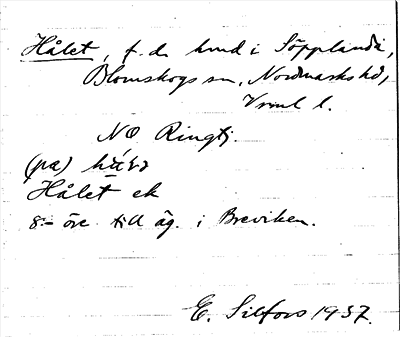 Hålet, f.d. hmd i Söpplanda,
Blomskogs sn, Nordmarks hd,
Vrml l.
NO Ringtj.
(pa)
Hålet ek
8:- öre till äg. i Breviken.
E. Silfors 1937.